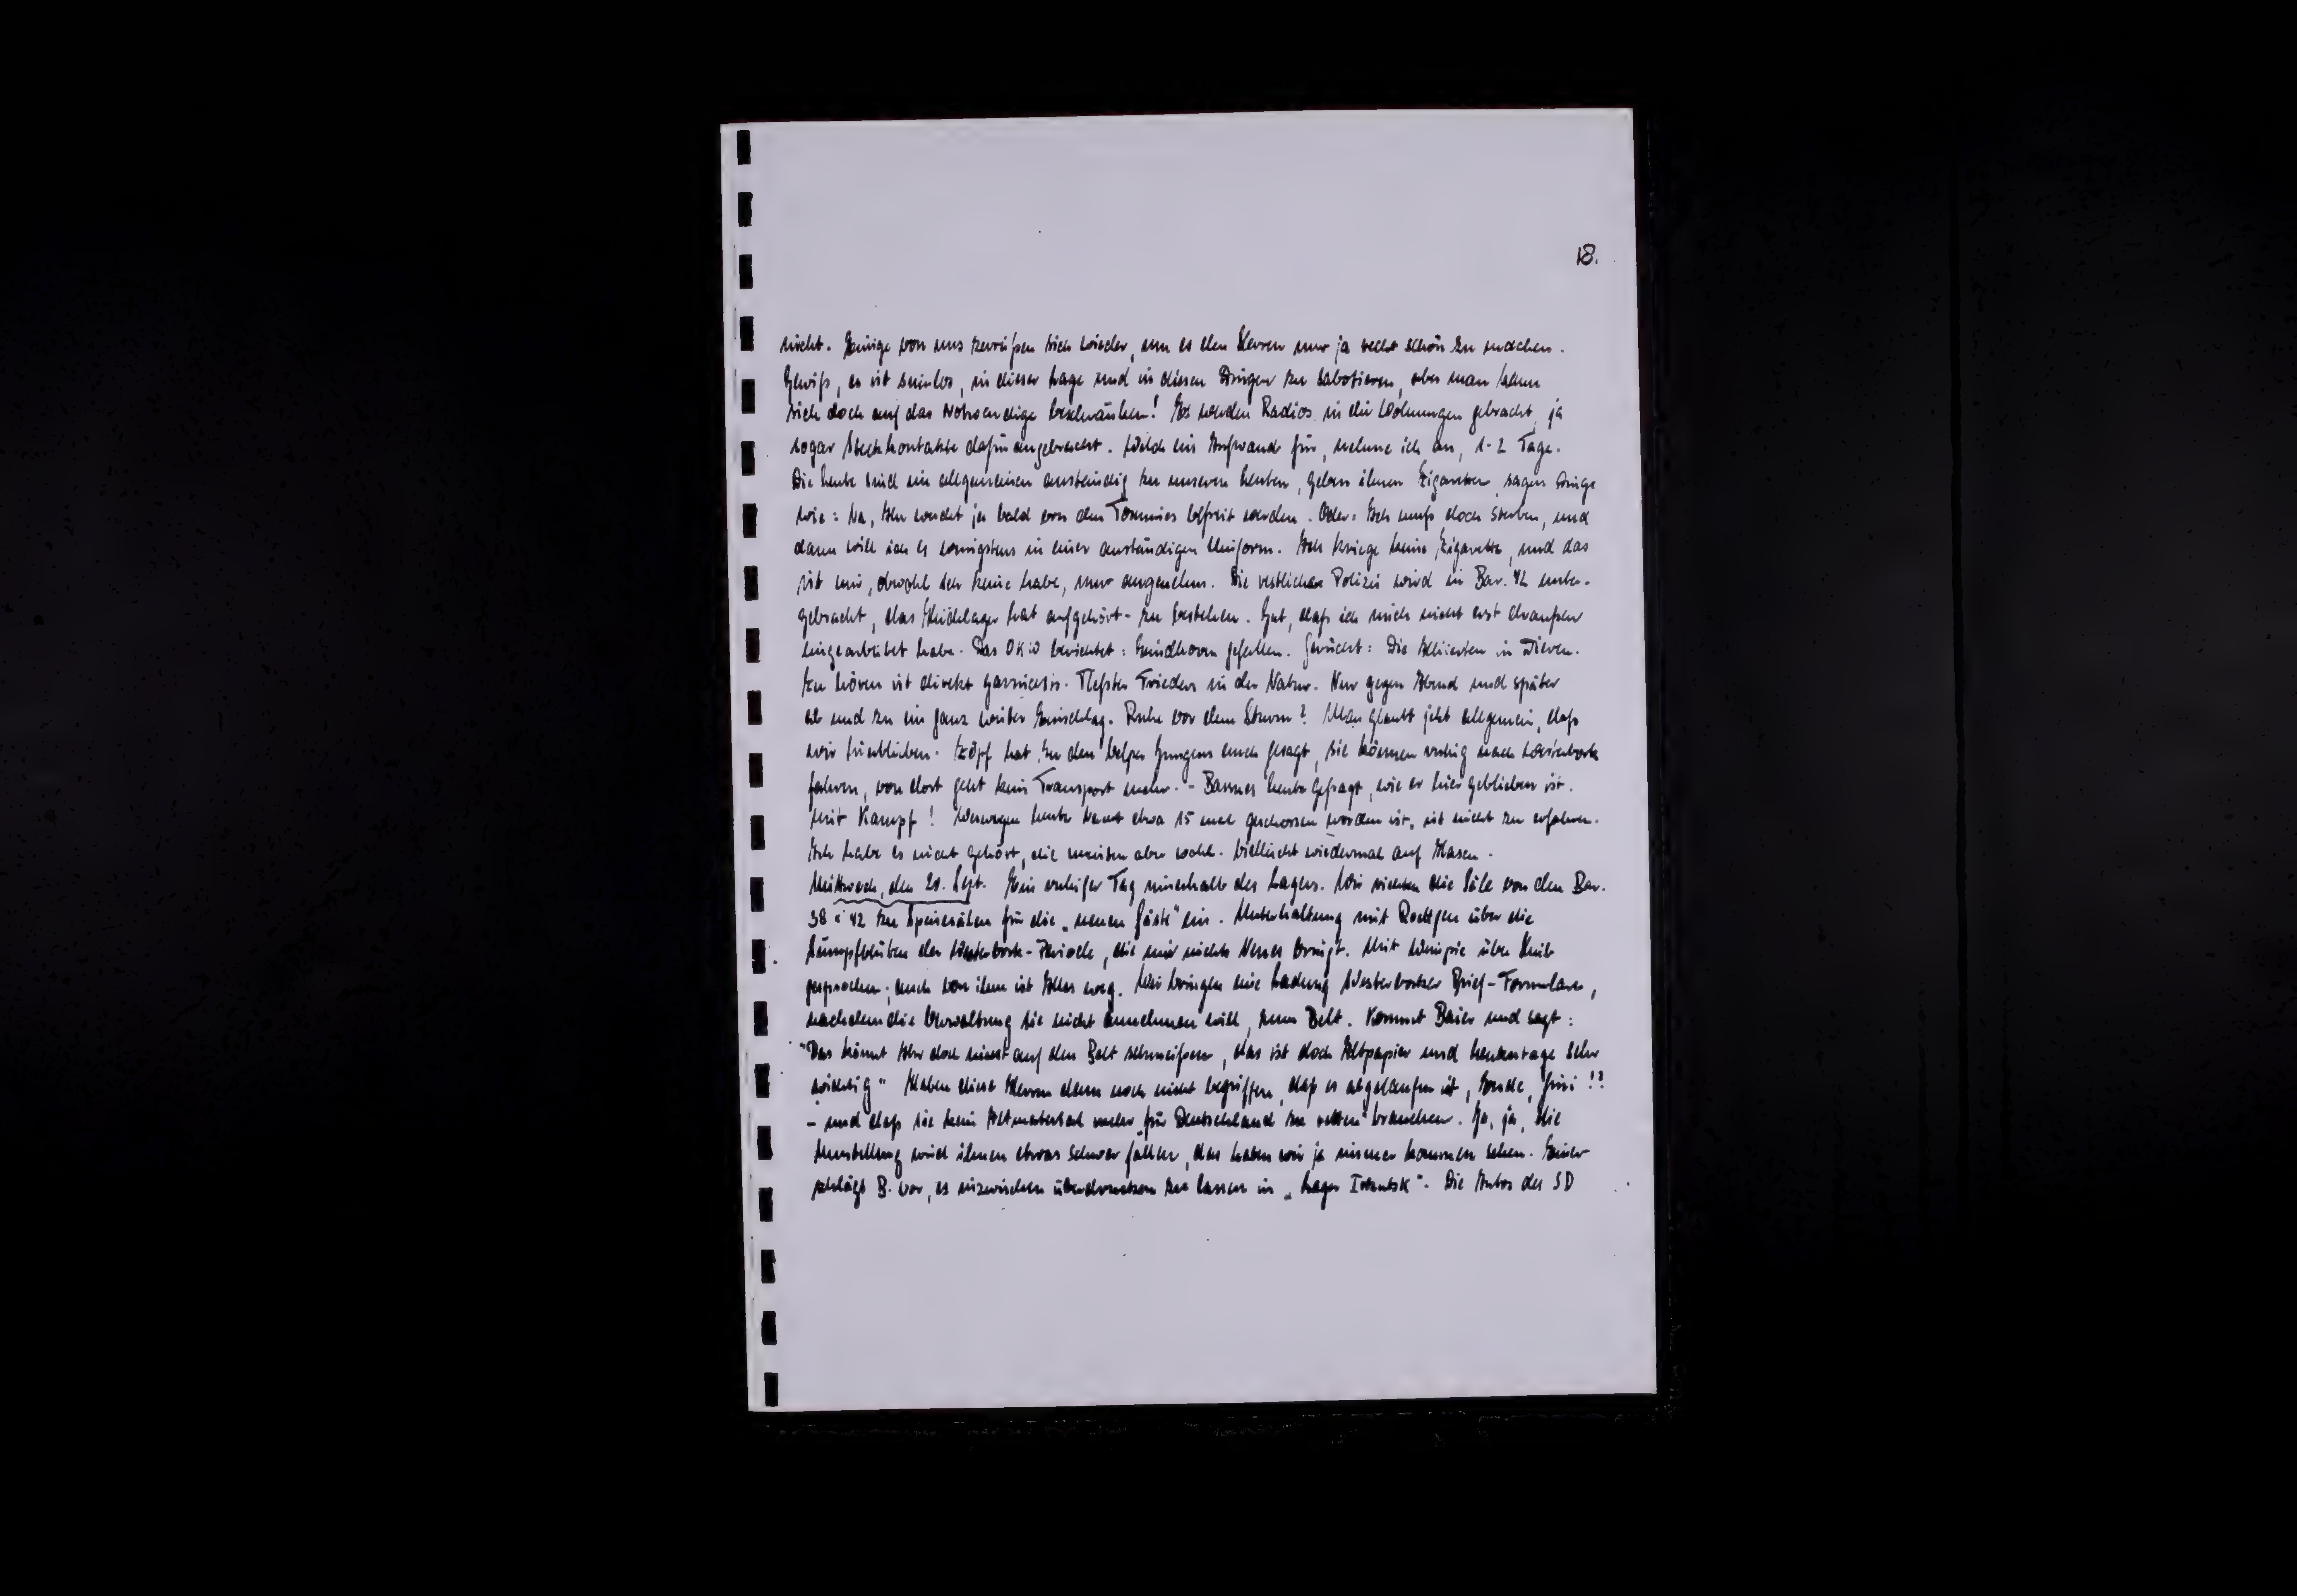 18.
nicht. Einige von uns zerreißen sich wieder, um es den Herren nur ja recht schön zu machen.
Gewiß, es ist sinnlos, in dieser Lage und in diesen Dingen zu sabotieren, aber man kann
sich doch auf das Notwendige beschränken! Es werden Radios in die Wohnungen gebracht, ja
sogar Steckkontakte dafür angebracht. Welch ein Aufwand für, nehme ich an, 1-2 Tage.
Die Leute sind im allgemeinen anständig zu unseren Leuten, geben ihnen Zigaretten, sagen Dinge
wie: Na, Ihr werdet ja bald von den Tommies befreit werden. Oder: Ich muß doch sterben, und
dann will ich es wenigstens in einer anständigen Uniform. Ich kriege keine Zigarette, und das
ist mir, obwohl ich keine habe, nur angenehm. Die restliche Polizei wird in Bar. 42 unter-
gebracht, das Heidelager hat aufgehört - zu bestehen. Gut, daß ich mich nicht erst draußen
eingearbeitet habe. Das OKW berichtet: Eindhoven gefallen. Gerücht: Die Alliierten in Dieren.
Zu hören ist direkt garnichts. Tiefster Frieden in der Natur. Nur gegen Abend und später
ab und zu ein ganz weiter Einschlag. Ruhe vor dem Sturm? Man glaubt jetzt allgemein, daß
wir hierbleiben. hat zu den Jungens auch gesagt, sie können ruhig nach Westerbork
fahren, von dort geht kein Transport mehr. - heute gefragt, wie er hier geblieben ist.
Mit Kampf! Weswegen heute Nacht etwa 15 mal geschossen worden ist, ist nicht zu erfahren.
Ich habe es nicht gehört, die meisten aber wohl. Vielleicht wiedermal auf Hasen.
Mittwoch, den 20. Sept. Ein ruhiger Tag innerhalb des Lagers. Wir richten die Säle von den Bar.
38 u 42 zu Speisesälen für die „neuen Gäste" ein. Unterhaltung mit Roettgen über die
Sumpfblüten der Westerbork-Periode, die mir nichts Neues bringt. Mit über
gesprochen; auch von ihm ist Alles weg. Wir bringen eine Ladung Westerborker Brief-Formulare,
nachdem die Verwaltung sie nicht annehmen will, zum Belt. Kommt Baier und sagt:
"Das könnt Ihr doch nicht auf den Belt schmeißen, das ist doch Altpapier und heutzutage sehr
wichtig" Haben diese Herren denn noch nicht begriffen, daß es abgelaufen ist, Ende, fini!?
- und daß sie kein Altmaterial mehr „für Deutschland zu retten" brauchen. Ja, ja, die
Umstellung wird ihnen etwas schwer fallen, das haben wir ja immer kommen sehen. Einer
schlägt B. vor, es inzwischen überdrucken zu lassen in „Lager Irkutsk". Die Autos des SD